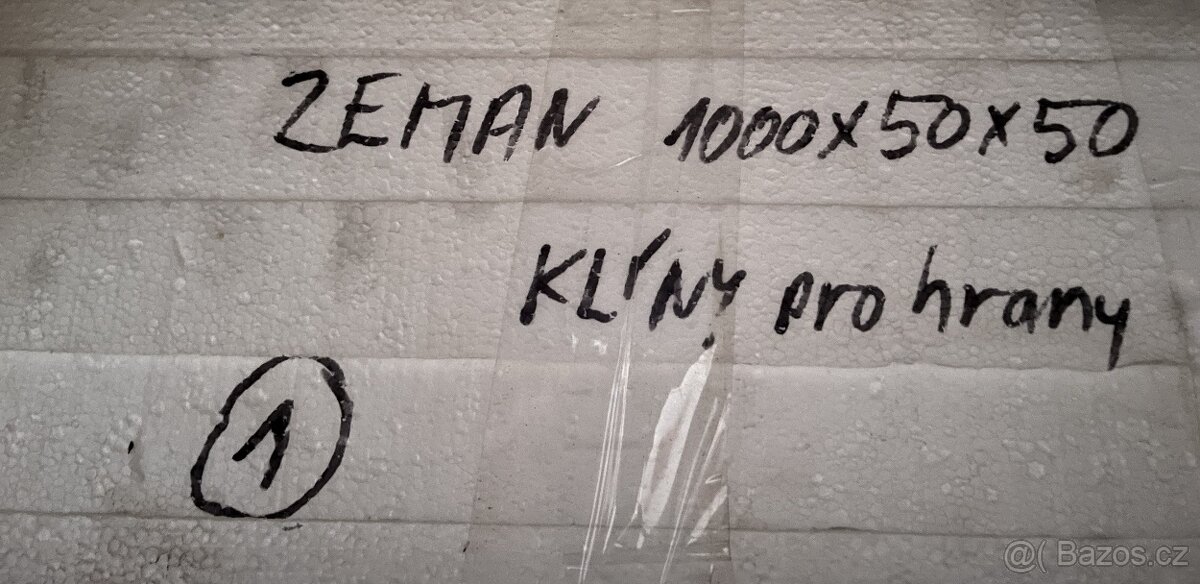 ZEMAN 1000x50x50
KLÍNY pro hrany
1
@( Bazos.cz